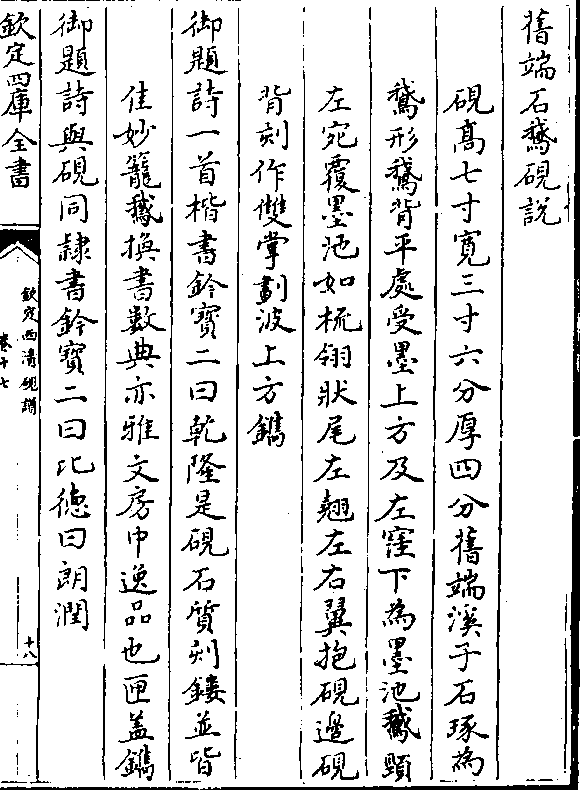 舊端石鵝硯說
硯髙七寸寛三寸六分厚四分舊端溪子石琢為
鵝形鵝背平處受墨上方及左窪下為墨池鵝頸
左宛覆墨池如梳翎狀尾左翹左右翼抱硯邊硯
背刻作雙掌劃波上方鐫
御題詩一首楷書鈐寳二曰乾隆是硯石質刻鏤並皆
佳妙籠鵝換書數典亦雅文房中逸品也匣盖鐫
御題詩與硯同隷書鈐寳二曰比德曰朗潤
欽定四庫全書
欽定西清硯譜
卷十七
十八